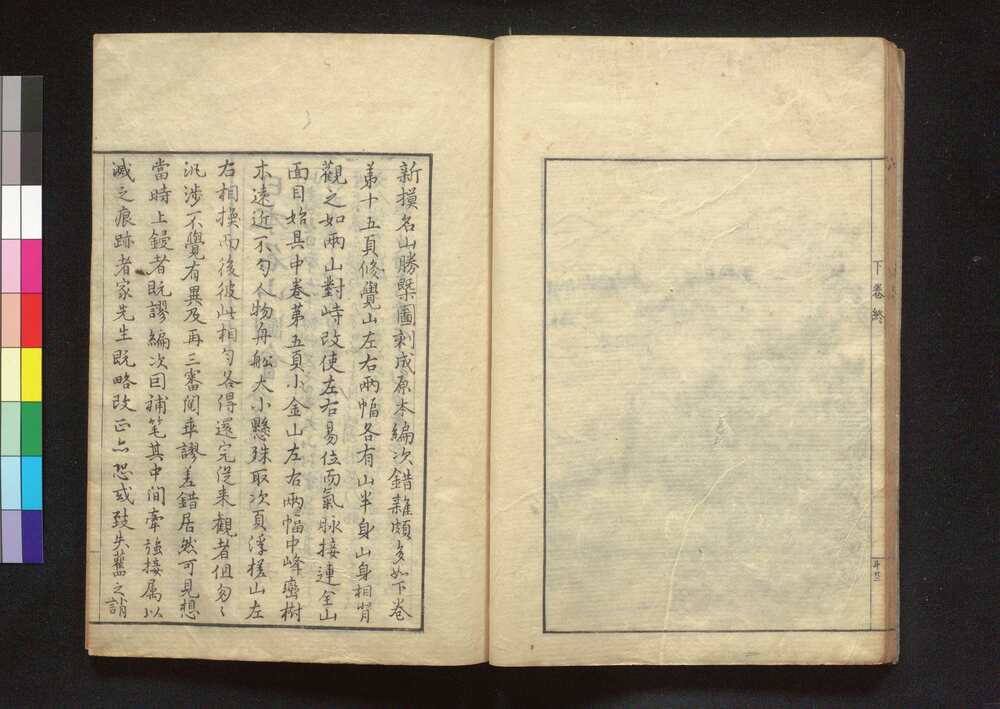 下卷終
新摸名山勝槩圖刻成原本編次錯雜頗多如下卷
第十五頁脩覺山左右兩幅各有山半身山身相背
觀之如兩山對峙改使左右易位而氣脉接連全山
面目始具中卷第五頁小金山左右兩幅中峰巒樹
木遠近不匀人物舟舩大小懸殊取次頁浮槎山左
右相換而後彼此相匀各得還完從来觀者但匆々
汎渉不覺有異及再三審閲乖謬差錯居然可見想
當時上鋟者既謬編次囙補笔其中间牽強接属以
滅之痕跡者家先生既略改正亦恐或致失舊之誚